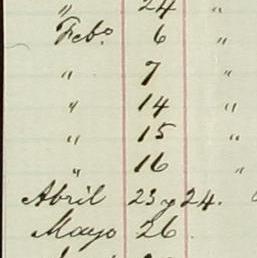 " 24 "
Febo. 6 "
" 7 "
" 14 "
" 15 "
" 16 "
Abril 23 y 24.
Mayo 26.